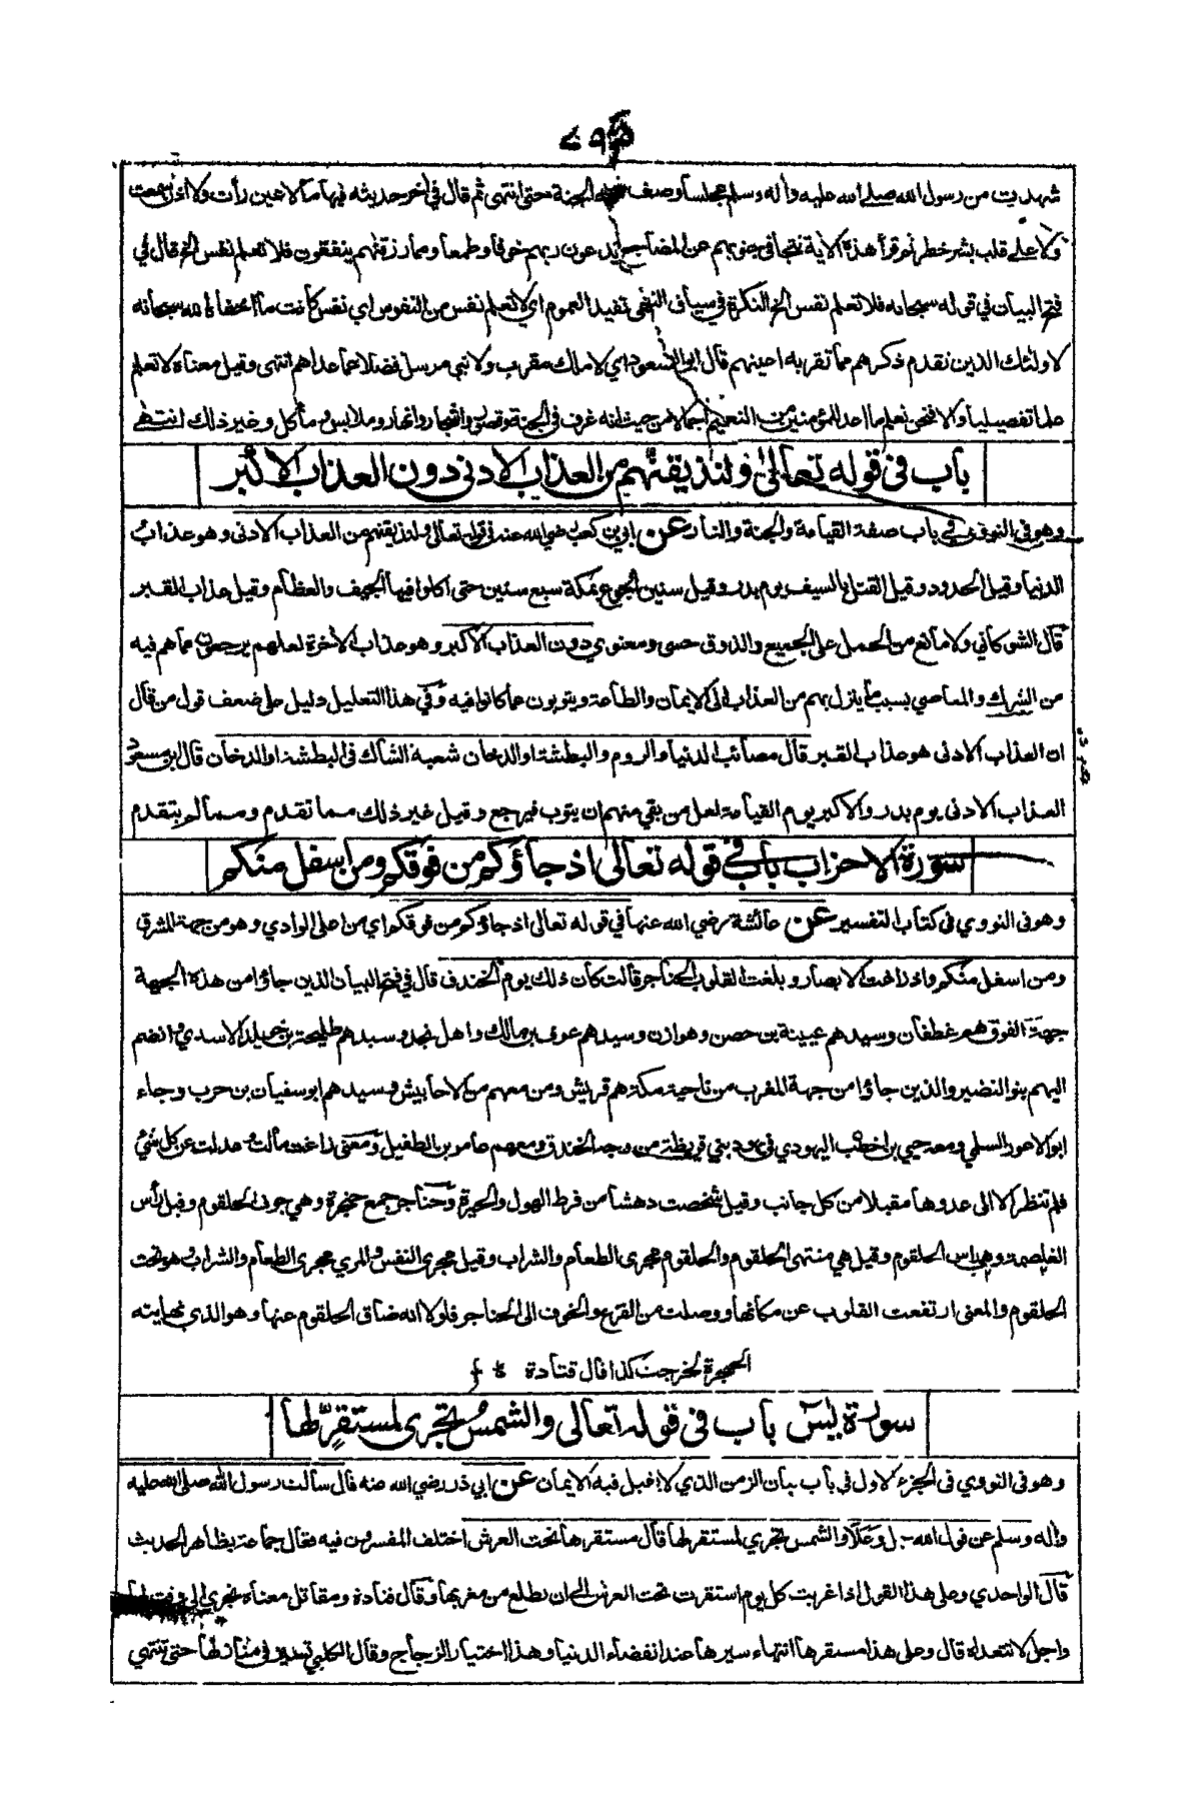 شهدت من رسول الله صلى الله عليه وأله وسلم مجلسا وصف فيه الجنة حتى انتهى ثم قال في أخر حديثه فيها مالا عين رأت ولا اذن سمعت
ولا على قلب بشر خطر ثم قرأ هذة الأية تتجافى جنوبهم عن المضاجع يدعون ربهم خوفا وطمعا ومما رزقنهم ينفقون فلا تعلم نفس الخ قال في
فتح البيان في قوله سبحانه فلا تعلم نفس الخ النكرة في سياق النفي تفيد العموم اي لا تعلم نفس من النفوس اي نفس كانت ما اخفاه الله سبحانه
لاولئك الذين تقدم ذكرهم مما تقر به اعينهم قال ابو السعود اي لا ملك مقرب ولا نبي مرسل فضلا عما عداهم انتهى وقيل معناه لا تعلم
علما تفصيليا والا فنحن نعلم ما اعد للمؤمنين من النعيم اجمالا من حيث انه غرف في الجنة وقصور واشجار وانهار وملابس ومأكل وغير ذلك انتهى
باب في قوله تعالى ولنذيقنهم من العذاب الادنى دون العذاب الاكبر
وهو في النووي في باب صفة القيامة والجنة والنار عن ابي بن كعب رضي الله عنه في قوله تعالى ولنذيقنهم من العذاب الادنى وهو عذاب
الدنيا وقيل الحدود وقيل القتل بالسيف يوم بدر وقيل سنين الجوع بمكة سبع سنين حتى اكلوا فيها الجيف والعظام وقيل عذاب القبر
قال الشوكاني ولا مانع من الحمل على الجميع والذوق حسي ومعنوي دون العذاب الاكبر وهو عذاب الأخرة لعلهم يرجعون عما هم فيه
من الشرك والمعاصي بسبب ما ينزل بهم من العذاب الى الايمان والطاعة ويتوبون عما كانوا فيه وفي هذا التعليل دليل على ضعف قول من قال
ان العذاب الادنى هو عذاب القبر قال مصائب الدنيا والروم والبطشة او الدخان شعبة الشاك في البطشة او الدخان قال ابن مسعود
العذاب الادنى يوم بدر والاكبر يوم القيامة لعل من بقي منهم ان يتوب فيرجع وقيل غير ذلك مما تقدم ومما لم يتقدم
سورة الاحزاب باب في قوله تعالى اذ جاؤكم من فوقكم ومن اسفل منكم
وهو في النووي في كتاب التفسير عن عائشة رضي الله عنها في قوله تعالى اذ جاؤكم من فوقكم اي من اعلى الوادي وهو من جهة المشرق
ومن اسفل منكم واذ زاغت الابصار وبلغت القلوب الحناجر قالت كان ذلك يوم الخندق قال في فتح البيان الذين جاؤا من هذه الجهة
جهة الفوق هم غطفان وسيدهم عيينة بن حصن وهوازن وسيدهم عوف بن مالك واهل نجد وسيدهم طليحة بن خويلد الاسدي وانضم
اليهم بنو النضير والذين جاؤا من جهة المغرب من ناحية مكة هم قريش ومن معهم من الاحابيش وسيدهم ابو سفيان بن حرب وجاء
ابو الاعور السلمي ومعه حيي بن اخطب اليهودي في يهود بني قريظة من وجه الخندق ومعهم عامر بن الطفيل ومعنى زاغت مالت وعدلت عن كل شيء
فلم تنظر الا الى عدوها مقبلا من كل جانب وقيل شخصت دهشا من فرط الهول والحيرة وحناجر جمع حنجرة وهي جوف الحلقوم وقيل رأس
الغلصمة وهي رأس الحلقوم وقيل هي منتهى الحلقوم والحلقوم مجرى الطعام والشراب وقيل مجرى النفس والمري مجرى الطعام والشراب وهو تحت
الحلقوم والمعنى ارتفعت القلوب عن مكانها ووصلت من الفزع والخوف الى الحناجر فلولا انه ضاق الحلقوم عنها وهو الذي نهايته
الحنجرة لخرجت كذا قال قتادة
سورة يس باب في قوله تعالى والشمس تجري لمستقر لها
وهو في النووي في الجزء الاول في باب بيان الزمن الذي لا يقبل فيه الايمان عن ابي ذر رضي الله عنه قال سألت رسول الله صلى الله عليه
وأله وسلم عن قول الله جل وعلا والشمس تجري لمستقر لها قال مستقرها تحت العرش اختلف المفسرون فيه فقال جماعة بظاهر الحديث
قال الواحدي وعلى هذا القول اذا غربت كل يوم استقرت تحت العرش الى ان تطلع من مغربها وقال قتادة ومقاتل معناه تجري الى وقت لها
واجل لا تتعداه قال وعلى هذا مستقرها انتهاء سيرها عند انقضاء الدنيا وهذا اختيار الزجاج وقال الكلبي تسير في منازلها حتى تنتهي